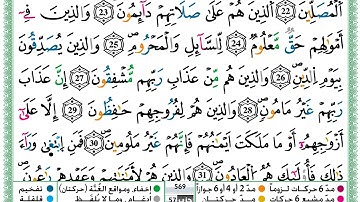 ٱلۡمُصَلِّينَ ٢٢ ٱلَّذِينَ هُمۡ عَلَىٰ صَلَاتِهِمۡ دَآئِمُونَ ٢٣ وَٱلَّذِينَ فِيٓ
أَمۡوَٰلِهِمۡ حَقّٞ مَّعۡلُومٞ ٢٤ لِّلسَّآئِلِ وَٱلۡمَحۡرُومِ ٢٥ وَٱلَّذِينَ يُصَدِّقُونَ
بِيَوۡمِ ٱلدِّينِ ٢٦ وَٱلَّذِينَ هُم مِّنۡ عَذَابِ رَبِّهِم مُّشۡفِقُونَ ٢٧ إِنَّ عَذَابَ
رَبِّهِمۡ غَيۡرُ مَأۡمُونٖ ٢٨ وَٱلَّذِينَ هُمۡ لِفُرُوجِهِمۡ حَٰفِظُونَ ٢٩ إِلَّا عَلَىٰٓ
أَزۡوَٰجِهِمۡ أَوۡ مَا مَلَكَتۡ أَيۡمَٰنُهُمۡ فَإِنَّهُمۡ غَيۡرُ مَلُومِينَ ٣٠ فَمَنِ ٱبۡتَغَىٰ وَرَآءَ
ذَٰلِكَ فَأُوْلَٰٓئِكَ هُمُ ٱلۡعَادُونَ ٣١ وَٱلَّذِينَ هُمۡ لِأَمَٰنَٰتِهِمۡ وَعَهۡدِهِمۡ رَٰعُونَ
مدّ 6 حركات لزوماً مدّ 2 أو 4 أو 6 جوازاً 569 إخفاء، ومواقع الغُنَّة (حركتان) تفخيم
مدّ مشبع 6 حركات مدّ حركتان إدغام، وما لا يُلفَظ قلقلة